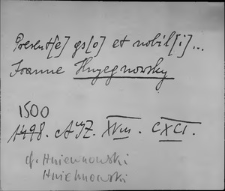 Present[e] gs[o] et nobil[i]...
Joanne Hnyegnowsky
1500
1498. AJZ. XVIII. CXCI.
cf. Hniewnowski
Hniehnowski